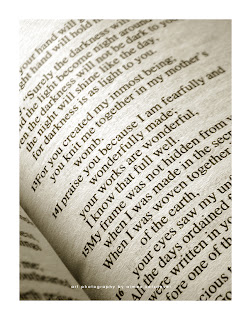 your hand will
right hand will hold
"Surely the darkness will
and the light become night around
the darkness will not be dark to you
the night will shine like the day,
for darkness is as light to you.
13For you created my inmost being;
you knit me together in my mother's
womb.
14I praise you because I am fearfully and
wonderfully made;
your works are wonderful,
I know that full well.
15My frame was not hidden from
when I was made in the secret
when I was woven together
of the earth,
16your eyes saw my
All the days ordained
were written in
before one of
art photography by